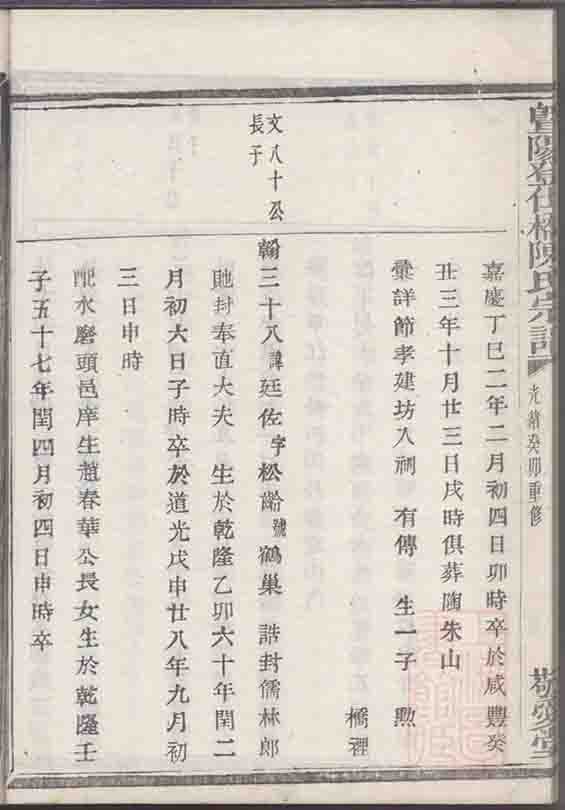 暨陽登仕橋陳氏宗譜 光緒癸卯重修 敬愛堂
嘉慶丁巳二年二月初四日卯時卒於咸豐癸
丑三年十月廿三日戌時俱葬陶朱山
彙詳節孝建坊入祠 有傳 生一子 勲
橋裡
文八十公
長子
翰三十八諱廷佐字松齡號鶴巢 誥封儒林郎
貤封奉直大夫 生於乾隆乙卯六十年閏二
月初六日子時卒於道光戊申廿八年九月初
三日申時
配水磨頭邑庠生趙春華公長女生於乾隆壬
子五十七年閏四月初四日申時卒